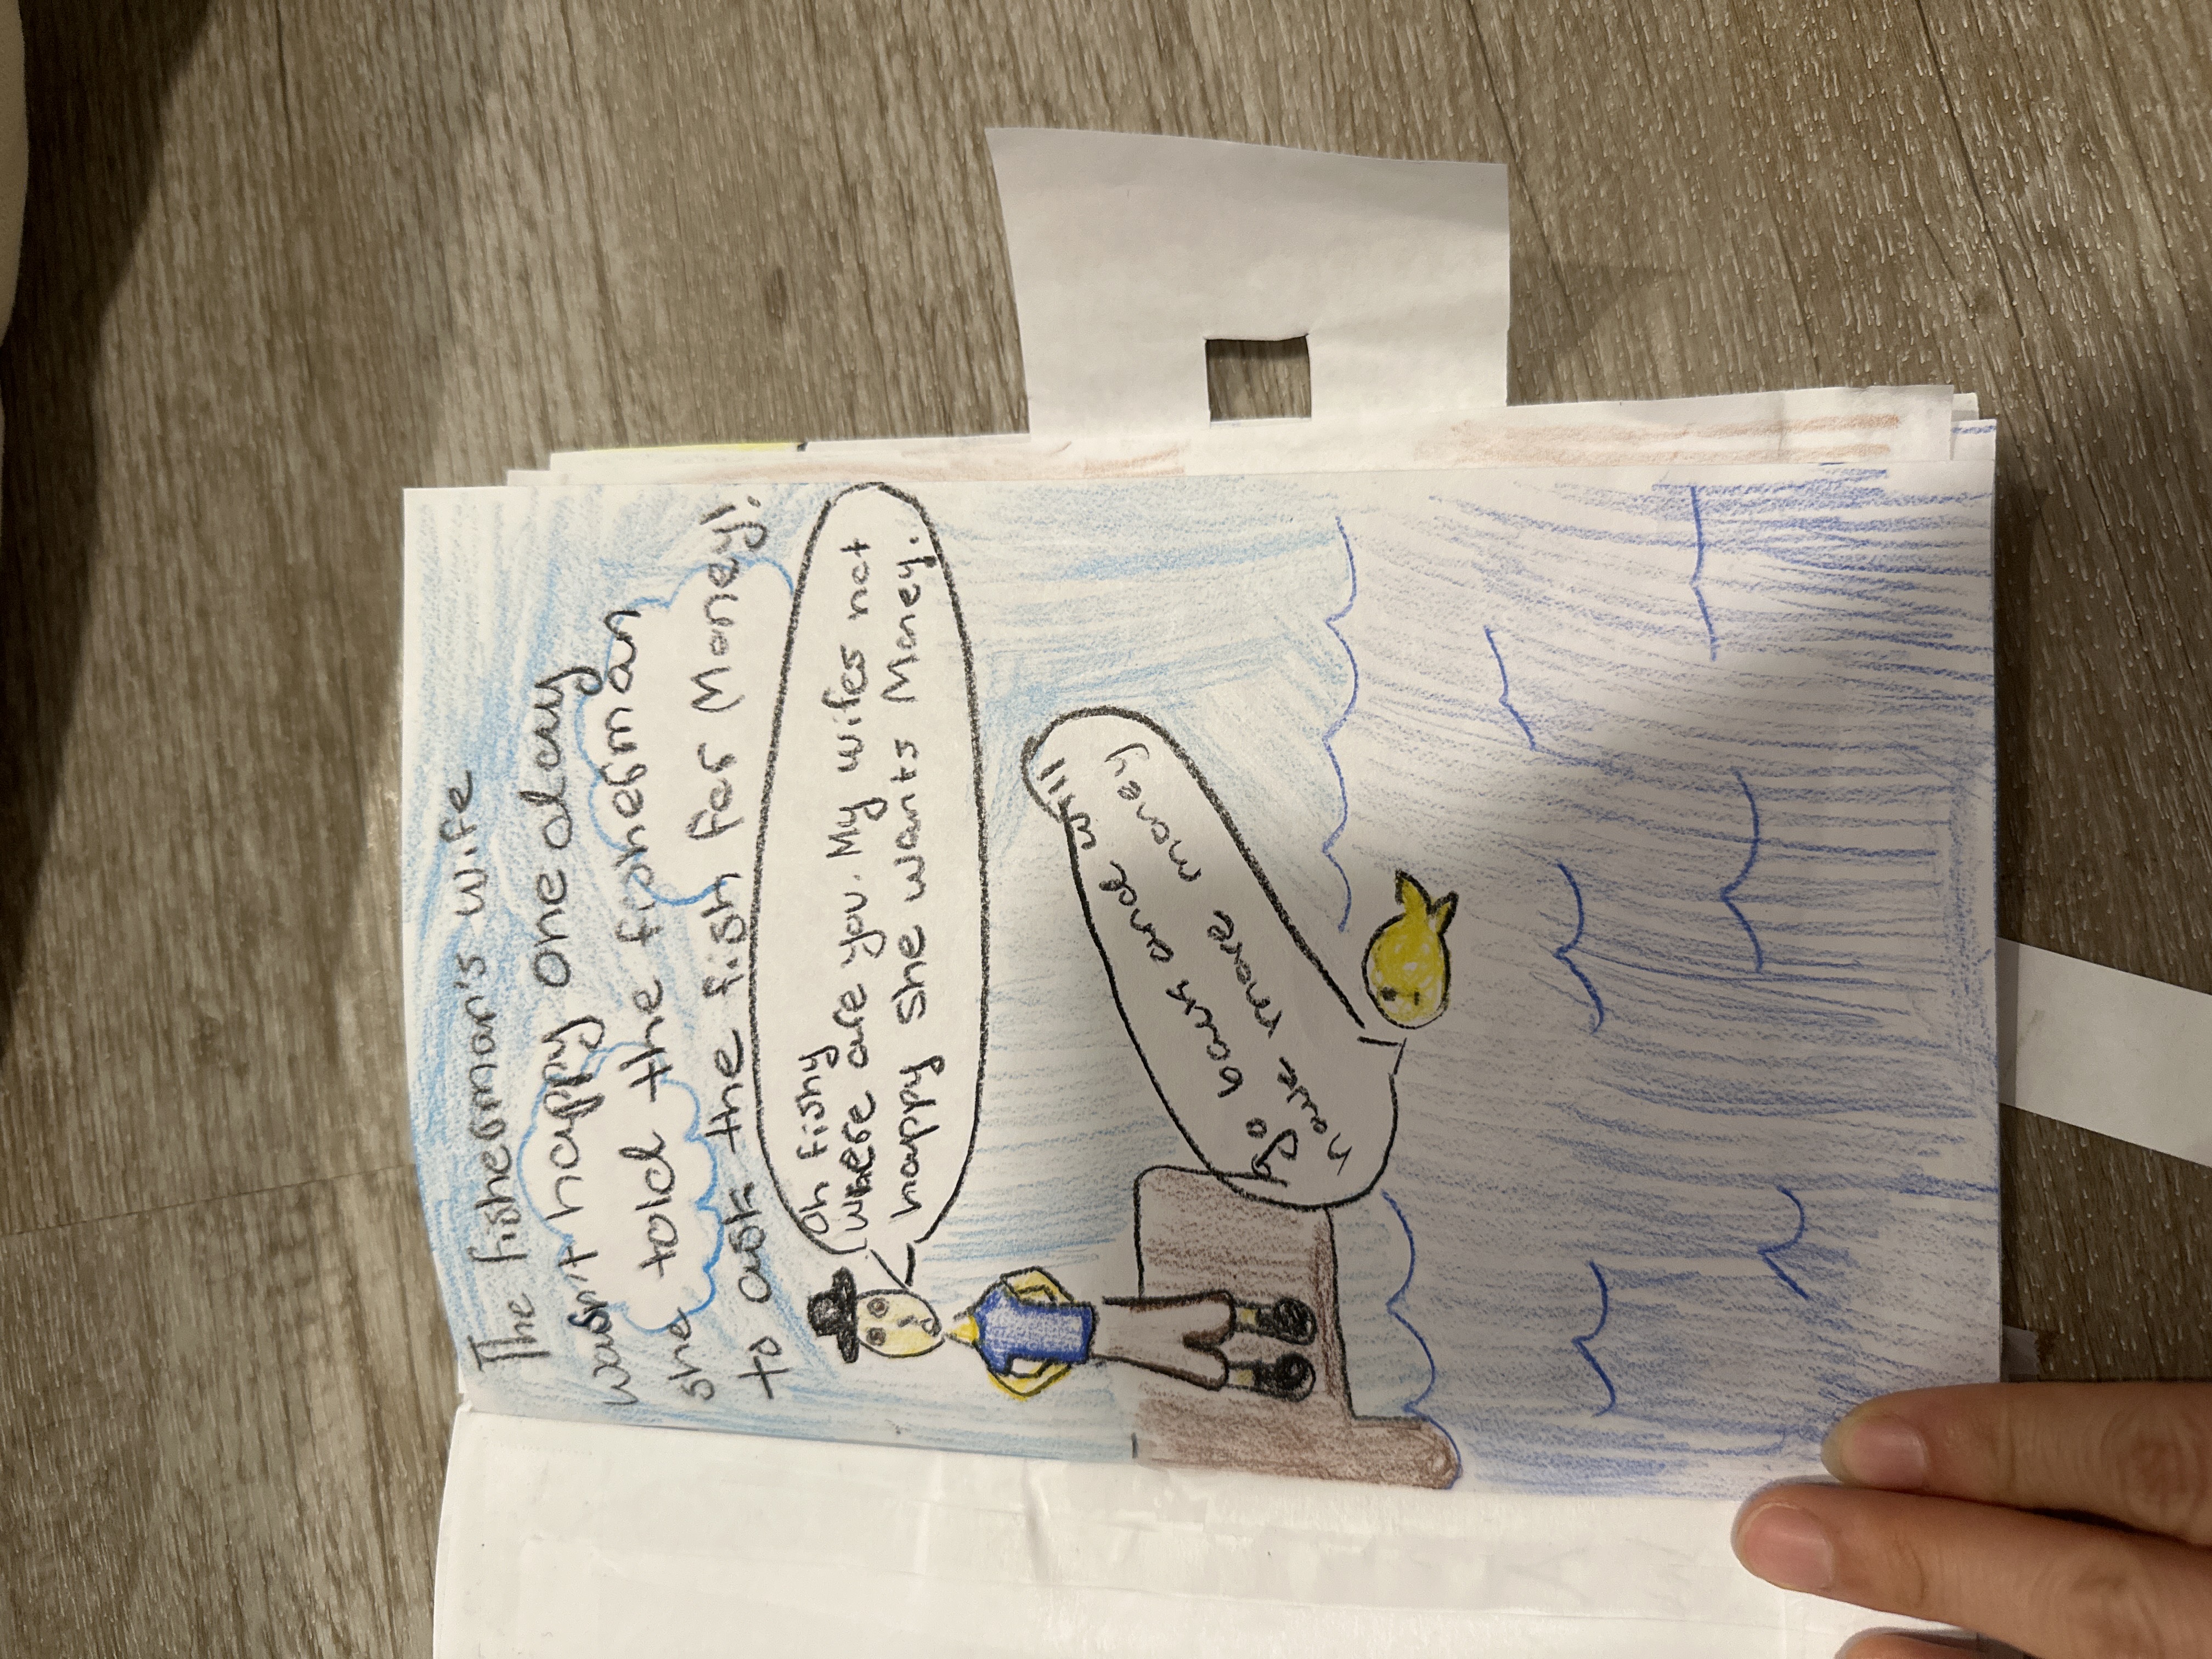 The fisherman's wife
wasn't happy one day
she told the fisherman
to ask the fish for Money!
Oh fishy
where are you. My wifes not
happy she wants Money.
go back and will
have more money